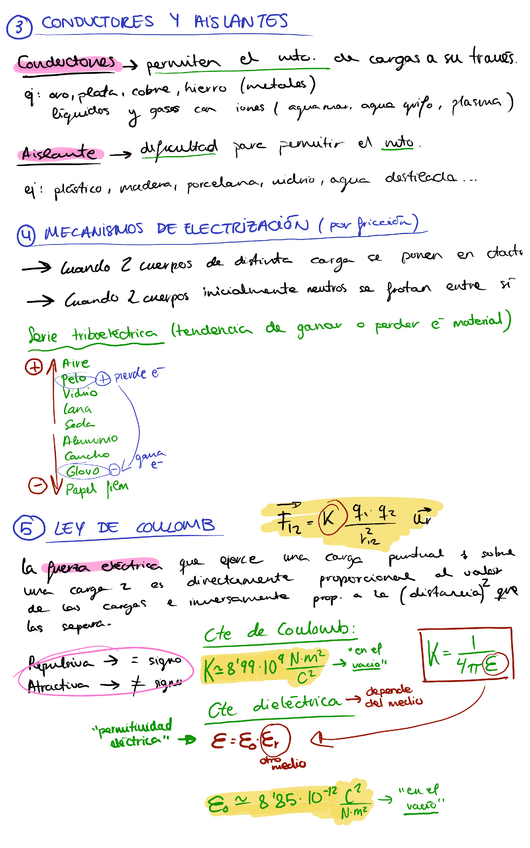 ③ CONDUCTORES Y AISLANTES
Conductores → permiten el mto. de cargas a su través.
ej: oro, plata, cobre, hierro (metales)
líquidos y gases con iones (agua mar, agua grifo, plasma)
Aislante → dificultad para permitir el mto.
ej: plástico, madera, porcelana, vidrio, agua destilada...
④ MECANISMOS DE ELECTRIZACIÓN (por fricción)
→ Cuando 2 cuerpos de distinta carga se ponen en ctacto
→ Cuando 2 cuerpos inicialmente neutros se frotan entre sí
Serie triboeléctrica (tendencia de ganar o perder e⁻ material)
⊕ Aire
Pelo ⊕ pierde e⁻
Vidrio
Lana
Seda
Aluminio
Caucho
Globo ⊖ gana e⁻
⊖ Papel film
⑤ LEY DE COULOMB
F₁₂ = K q₁· q₂ / r₁₂² ur
La fuerza eléctrica que ejerce una carga puntual 1 sobre
una carga 2 es directamente proporcional al valor
de las cargas e inversamente prop. a la (distancia)² que
las separa.
Repulsiva → = signo
Atractiva → ≠ signo
Cte de Coulomb:
K ≃ 8'99·10⁹ N·m²/C² → "en el vacío"
K = 1/4πε
Cte dieléctrica → depende del medio
"permitividad eléctrica" → ε = ε₀· εr
otro medio
ε₀ ≃ 8'85·10⁻¹² C²/N·m² → "en el vacío"